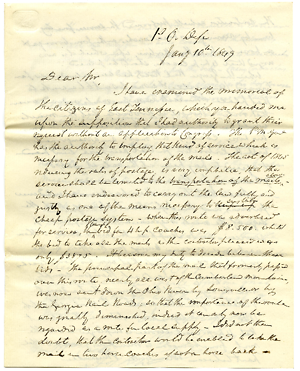 P. O. Dep.
Jany 10th 1849
Dear Sir,
I have examined the memorial of
the citizens of East Tennessee, which was handed me
upon the supposition that I had authority to grant their
request without an application to Congress. The P M Genl
has the authority to employ that kind of service which is
necessary for the transportation of the mails. The act of 1845
reducing the rates of postage, is very emphatic, that the
service shall be limited to the transportation of the mails
and I have endeavored to carry out the law fully and
as one of the means necessary to the
cheap postage system - when this route was advertised
for service, the bid for 4 h p coaches was $8.500. while
the bid to take all the mails as the contractor pleased was
only $3845 - It became my duty to decide between these
bids - The principal part of the mail that formerly passed
over this route, nearly all from beyond the Cumberland mountains
is now sent down the Ohio River by
the Georgia Rail Roads, so that the importance of the route
was greatly diminished, indeed it can only now be
regarded as a route for local supply - I did not then
doubt, that the contractor would be enabled to take the
mail in two horse coaches if not on horse back -